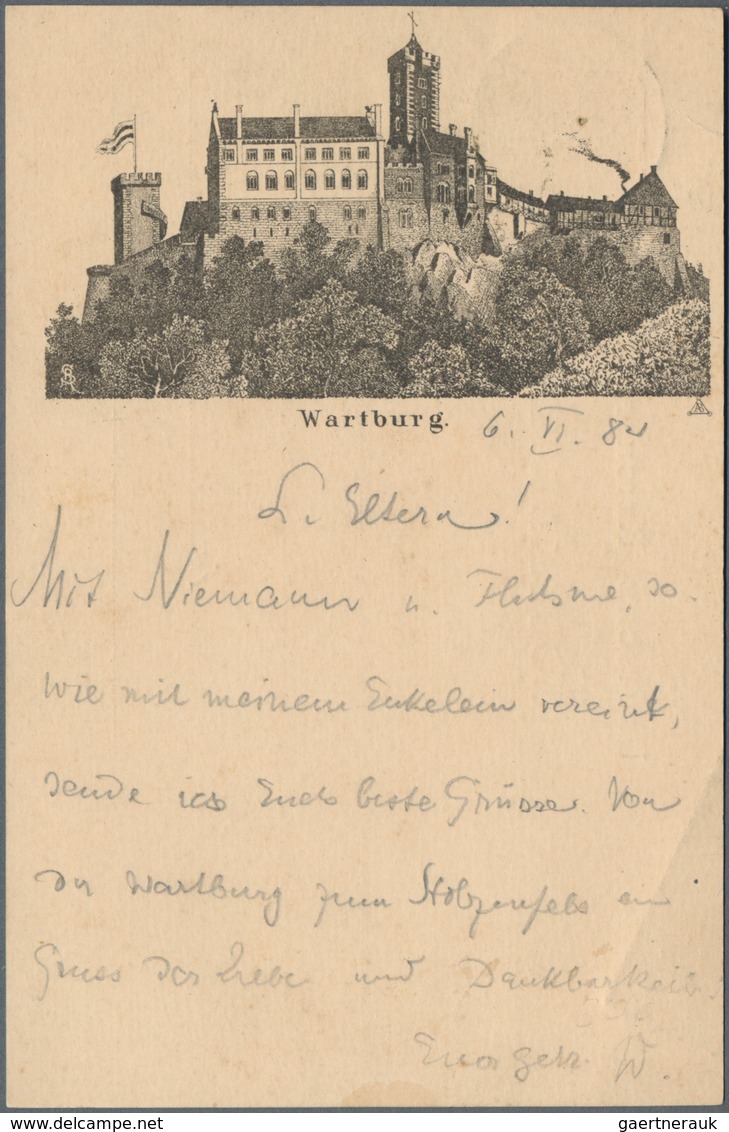 Wartburg.
6. VI. 84
L. Eltern!
Mit Niemann u. so-
wie mit meinem Enkelein vereint,
sende ich Euch beste Grüsse. Von
der Wartburg zum Stolzenfels ein
Gruss der Liebe und Dankbarkeit!
Euer getr. W.
gaertnerauk